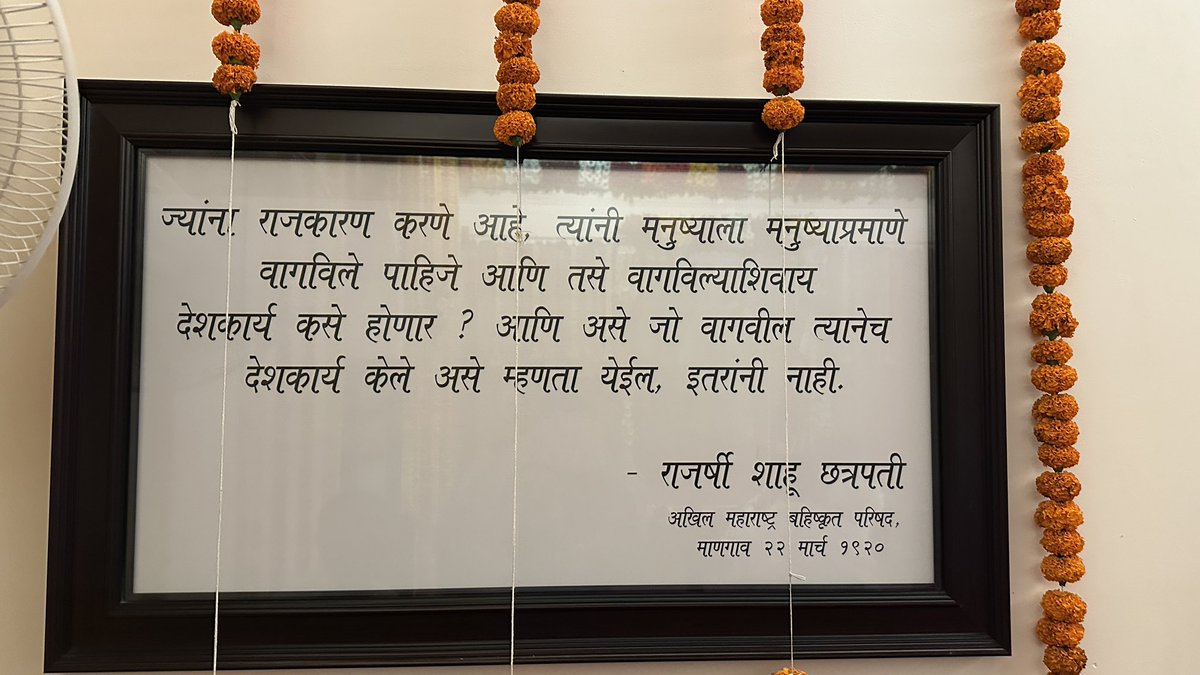 ज्यांना राजकारण करणे आहे, त्यांनी मनुष्याला मनुष्याप्रमाणे
वागविले पाहिजे आणि तसे वागविल्याशिवाय
देशकार्य कसे होणार ? आणि असे जो वागवील त्यानेच
देशकार्य केले असे म्हणता येईल, इतरांनी नाही.
- राजर्षी शाहू छत्रपती
अखिल महाराष्ट्र बहिष्कृत परिषद,
माणगाव २२ मार्च १९२०